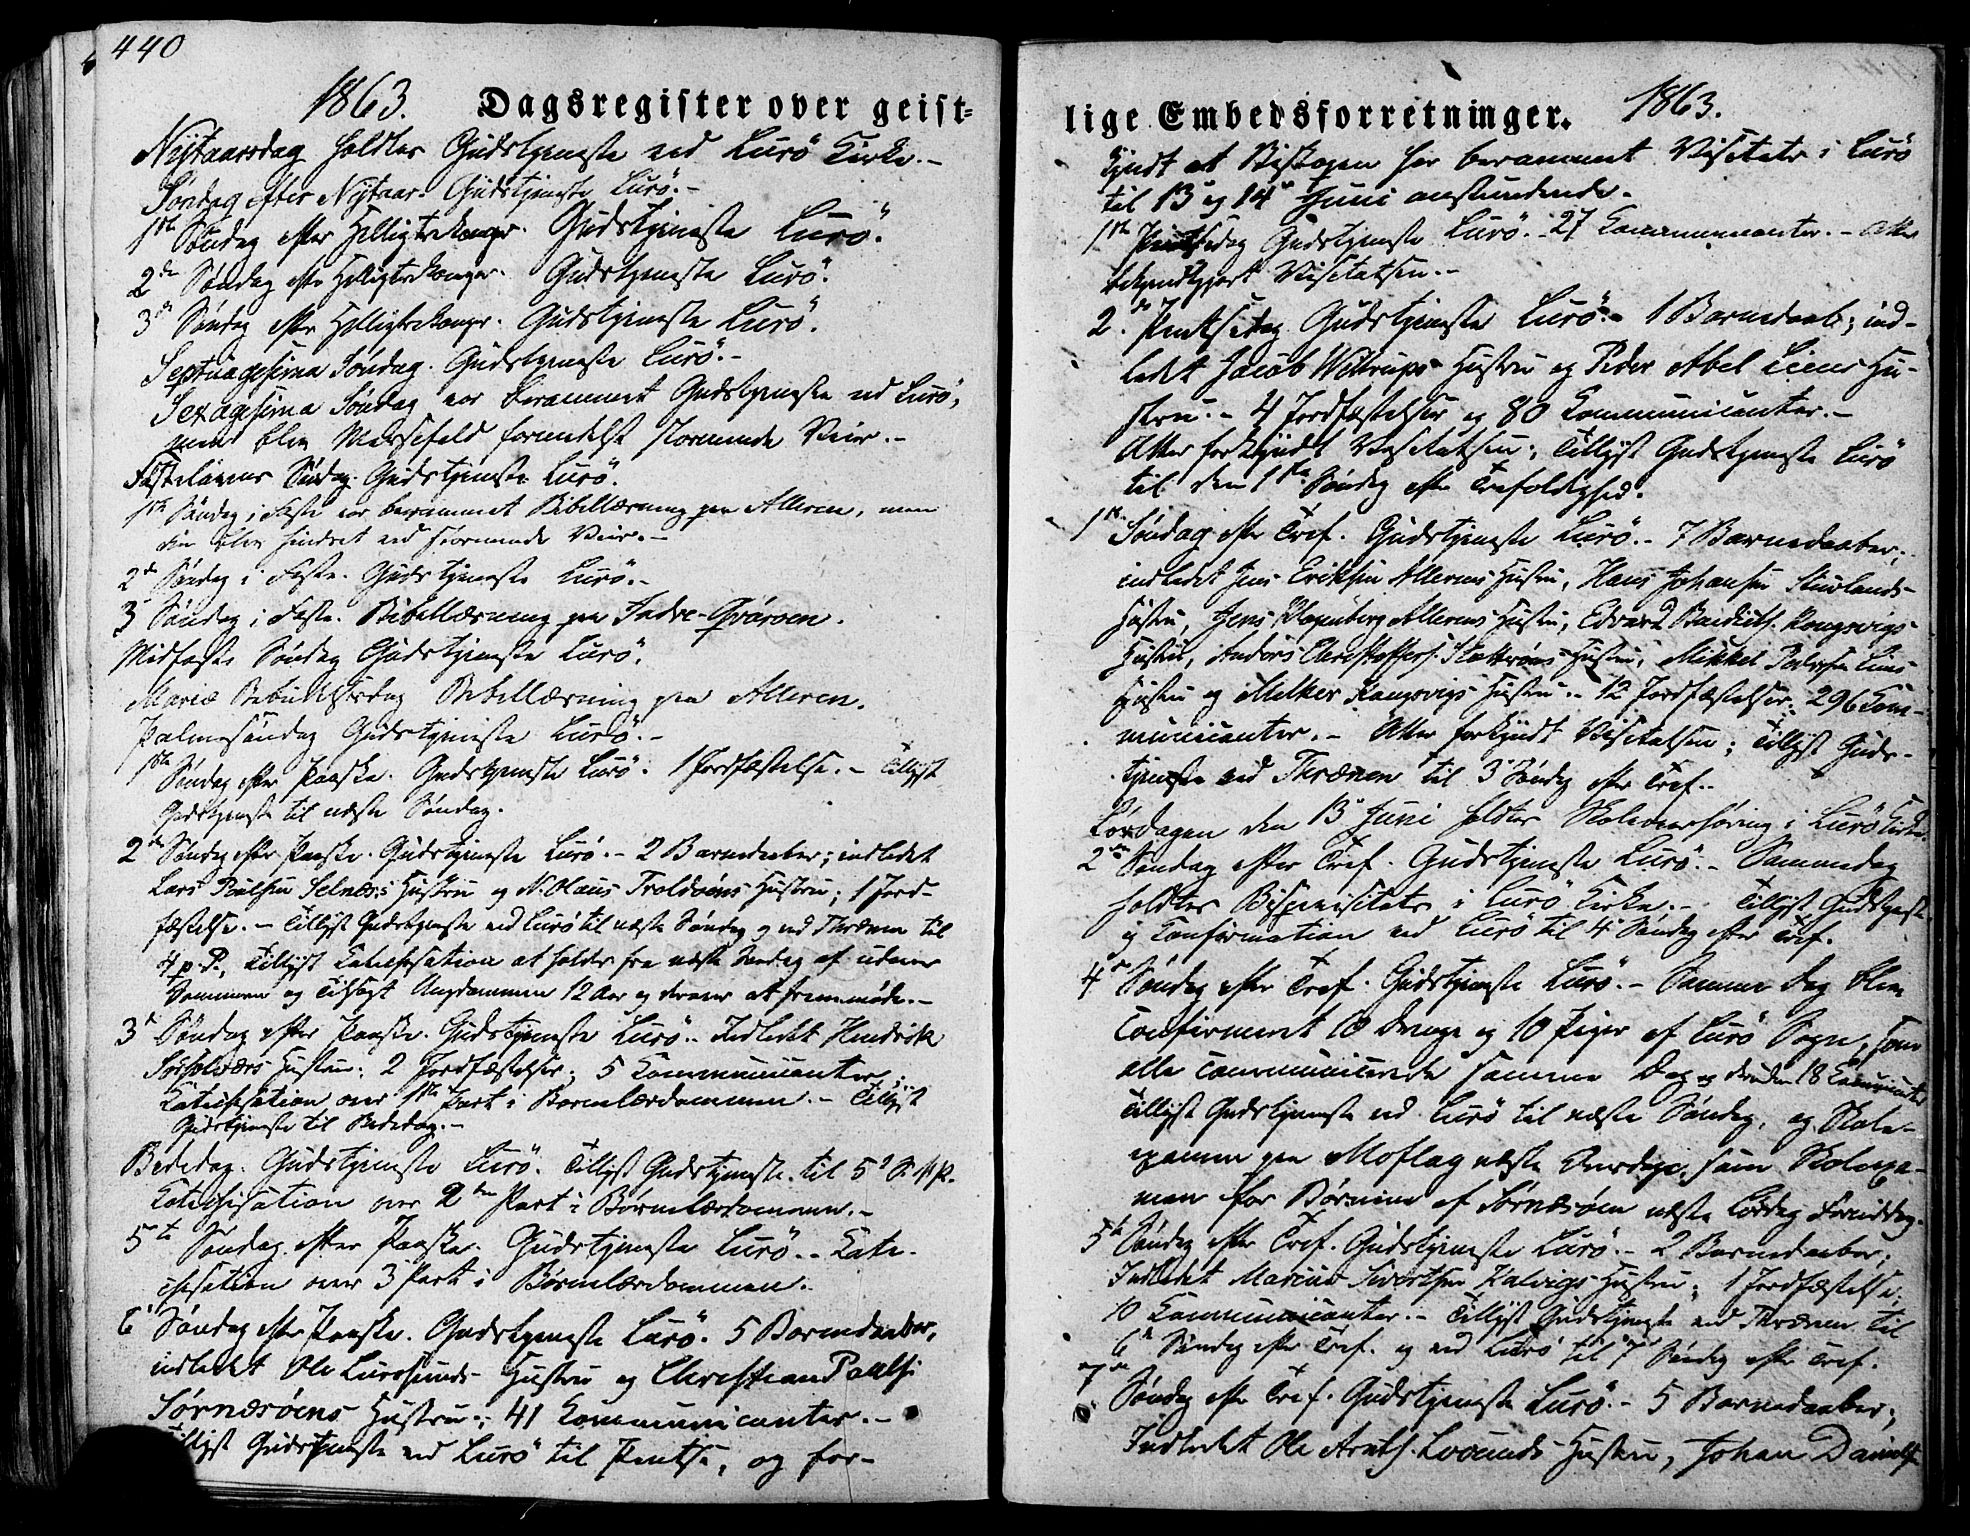 440
1863. Dagsregister over geist-
Nytaarsdag holdtes Gudstjeneste ved Lurö Kirke.-
Søndag efter Nytaar Gudstjeneste Lurö.-
1ste Søndag efter Helligtrekonger. Gudstjeneste Lurö.
2den Søndag efter Helligtrekonger. Gudstjeneste Lurö.
3die Søndag efter Helligtrekonger. Gudstjeneste Lurö.
Septuagesima Søndag. Gudstjeneste Lurö.-
Sexagesima Søndag var berammet Gudstjeneste ved Lurö,
men blev Messefald formedelst stormende Veir.-
Fastelavns Søndag Gudstjeneste Lurö.
1ste Søndag i Faste var berammet Bibellæsning paa Alleren, men
den blev hindret ved stormende Veir.-
2den Søndag i Faste. Gudstjeneste Lurö.-
3die Søndag i Faste. Bibellæsning paa Indre-Qvaroen.
Midfaste Søndag Gudstjeneste Lurö.
Mariæ Bebudelsesdag Bibellæsning paa Alleren.
Palmesøndag Gudstjeneste Lurö.-
1ste Søndag efter Paaske. Gudstjeneste Lurö. 1 Jordfæstelse.- Tillyst
Gudstjeneste til næste Søndag.
2den Søndag efter Paaske. Gudstjeneste Lurö.- 2 Barnedaaber; indledet
Lars Paulsen Selnæs's Hustru og N. Olaus Troldøens Hustru; 1 Jord-
fæstelse.- Tillyst Gudstjeneste ved Lurö til næste Søndag og ved Thrænen til
4 p. P., Tillyst Katechisation at holdes fra næste Søndag af udover
Sommeren og Tilsagt Ungdommen 12 Aar og derover at fremmøde.-
3die Søndag efter Paaske. Gudstjeneste Lurö.. Indledet Hendrik
Hustru; 2 Jordfæstelser; 5 Kommunicanter;
Katechisation over 1ste Part i Børnelærdommen.- Tillyst
Gudstjeneste til Bededag.-
Bededag. Gudstjeneste Lurö. Tillyst Gudstjeneste til 5te S. p. P.
Katechisation over 2den Part i Børnelærdommen.-
5te Søndag efter Paaske. Gudstjeneste Lurö.. Kate-
chisation over 3 Part i Børnelærdommen.
6te Søndag efter Paaske. Gudstjeneste Lurö. 5 Barnedaaber,
indledet Ole Lurøsunds Hustru og Christian Pauls.
Sørnæsøens Hustru; 41 Kommunicanter.-
Tillyst Gudstjeneste ved Lurö til Pintse, og for-
lige Embedsforretninger. 1863.
kyndt at Biskopen har berammet Visitats i Lurö
til 13de og 14de Juni anstundende.
1ste Pintsedag Gudstjeneste Lurö. 27 Kommunicanter.- Atter
bekjendtgjort Visitatsen.-
2den Pintsedag Gudstjeneste Lurö.- 1 Barnedaab; ind-
ledet Jacob Wittrups Hustru og Peder Abel Liens Hu-
stru.- 4 Jordfæstelser og 80 Kommunicanter.-
Atter forkyndt Visitatsen; Tillyst Gudstjeneste Lurö
til den 1ste Søndag efter Trefoldighed.
1ste Søndag efter Tref. Gudstjeneste Lurö.- 7 Barnedaaber;
indledet Jens Eriksen Allerens Hustru, Hans Johansen Sturlands
Hustru, Jens Allerens Hustru, Edvard Kongsvigs
Hustru, Anders Christoffers. Hustru, Mikkel Pedersen Liens
Hustru og Melker Kongsvigs Hustru.- 12 Jordfæstelser; 296 Kom-
municanter.- Atter forkyndt Visitatsen; Tillyst Guds-
tjeneste ved Thrænen til 3die Søndag efter Tref..
Lørdagen den 13de Juni holdtes Skoleoverhøring i Lurö Kirke.
2den Søndag efter Tref. Gudstjeneste Lurö.- Sammedag
holdtes Bispevisitats i Lurö Kirke.- Tillyst Gudstjeneste
og Confirmation ved Lurö til 4de Søndag efter Tref.
4de Søndag efter Tref. Gudstjeneste Lurö.- Samme Dag blev
Confirmeret 10 Drenge og 10 Piger af Lurö Sogn, som
alle communicerede samme Dag og desuden 18 Communicanter
Tillyst Gudstjeneste ved Lurö til næste Søndag, og Skole-
examen paa Moflag næste Onsdag, samt Skoleexa-
men for Børnene af Sørnæsøen næste Lørdag Formiddag.
5te Søndag efter Tref. Gudstjeneste Lurö.- 2 Barnedaaber;
Indledet Marius Sivertsen Kalvigs Hustru; 1 Jordfæstelse,
10 Kommunicanter.- Tillyst Gudstjeneste ved Thrænen til
6te Søndag efter Tref. og ved Lurö til 7de Søndag efter Tref.
7de Søndag efter Tref. Gudstjeneste Lurö.- 5 Barnedaaber;
Indledet Ole Arnts. Lovunds Hustru, Johan Daniels.